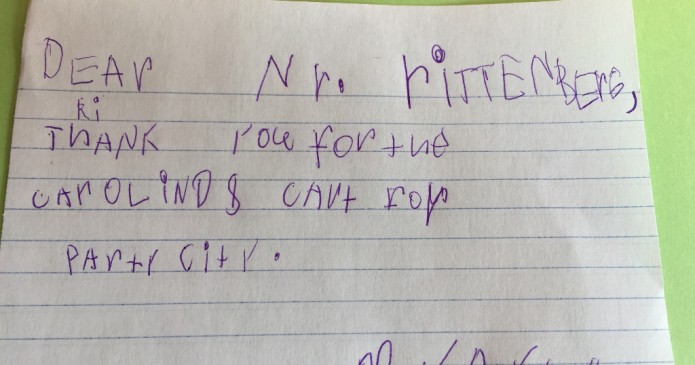 DEAr Nr. riTTENBErG,
Ki
THANK rou for the
CArOLIND8 CArt for
PArtr Citr.